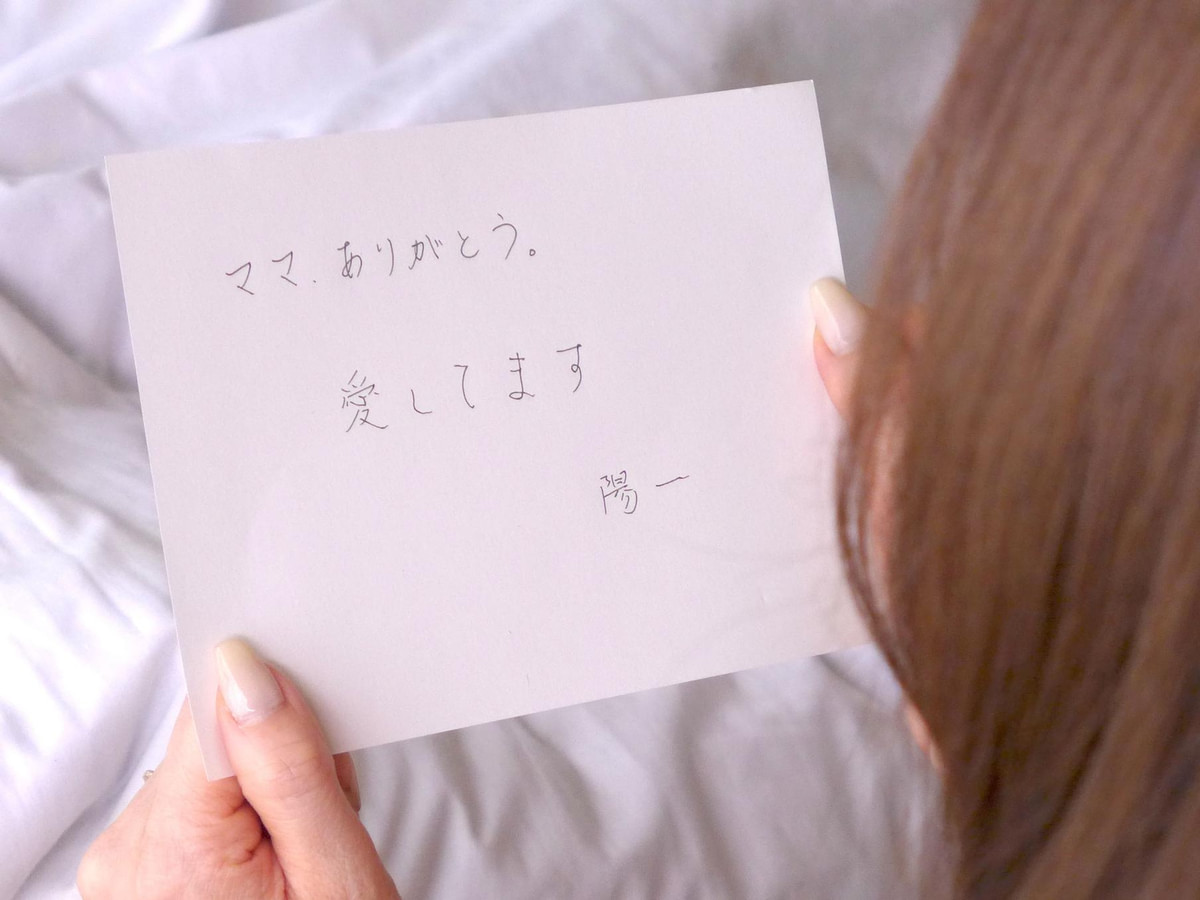 ママ、ありがとう。
愛してます
陽一